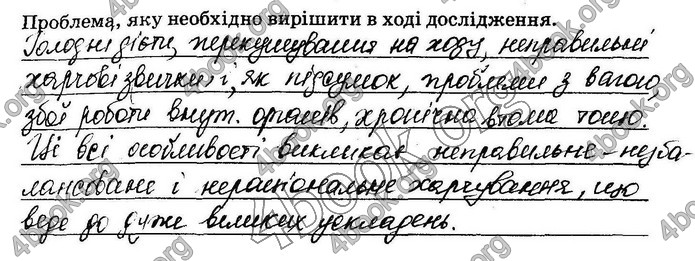 Проблема, яку необхідно вирішити в ході дослідження.
Голодні дієти, перекушування на ходу, неправильні
харчові звички і, як підсумок, проблеми з вагою,
збої роботи внут. органів, хронічна втома тощо.
Ці всі особливості викликає неправильне - незба-
лансоване і нераціональне харчування, що
веде до дуже великих ускладень.